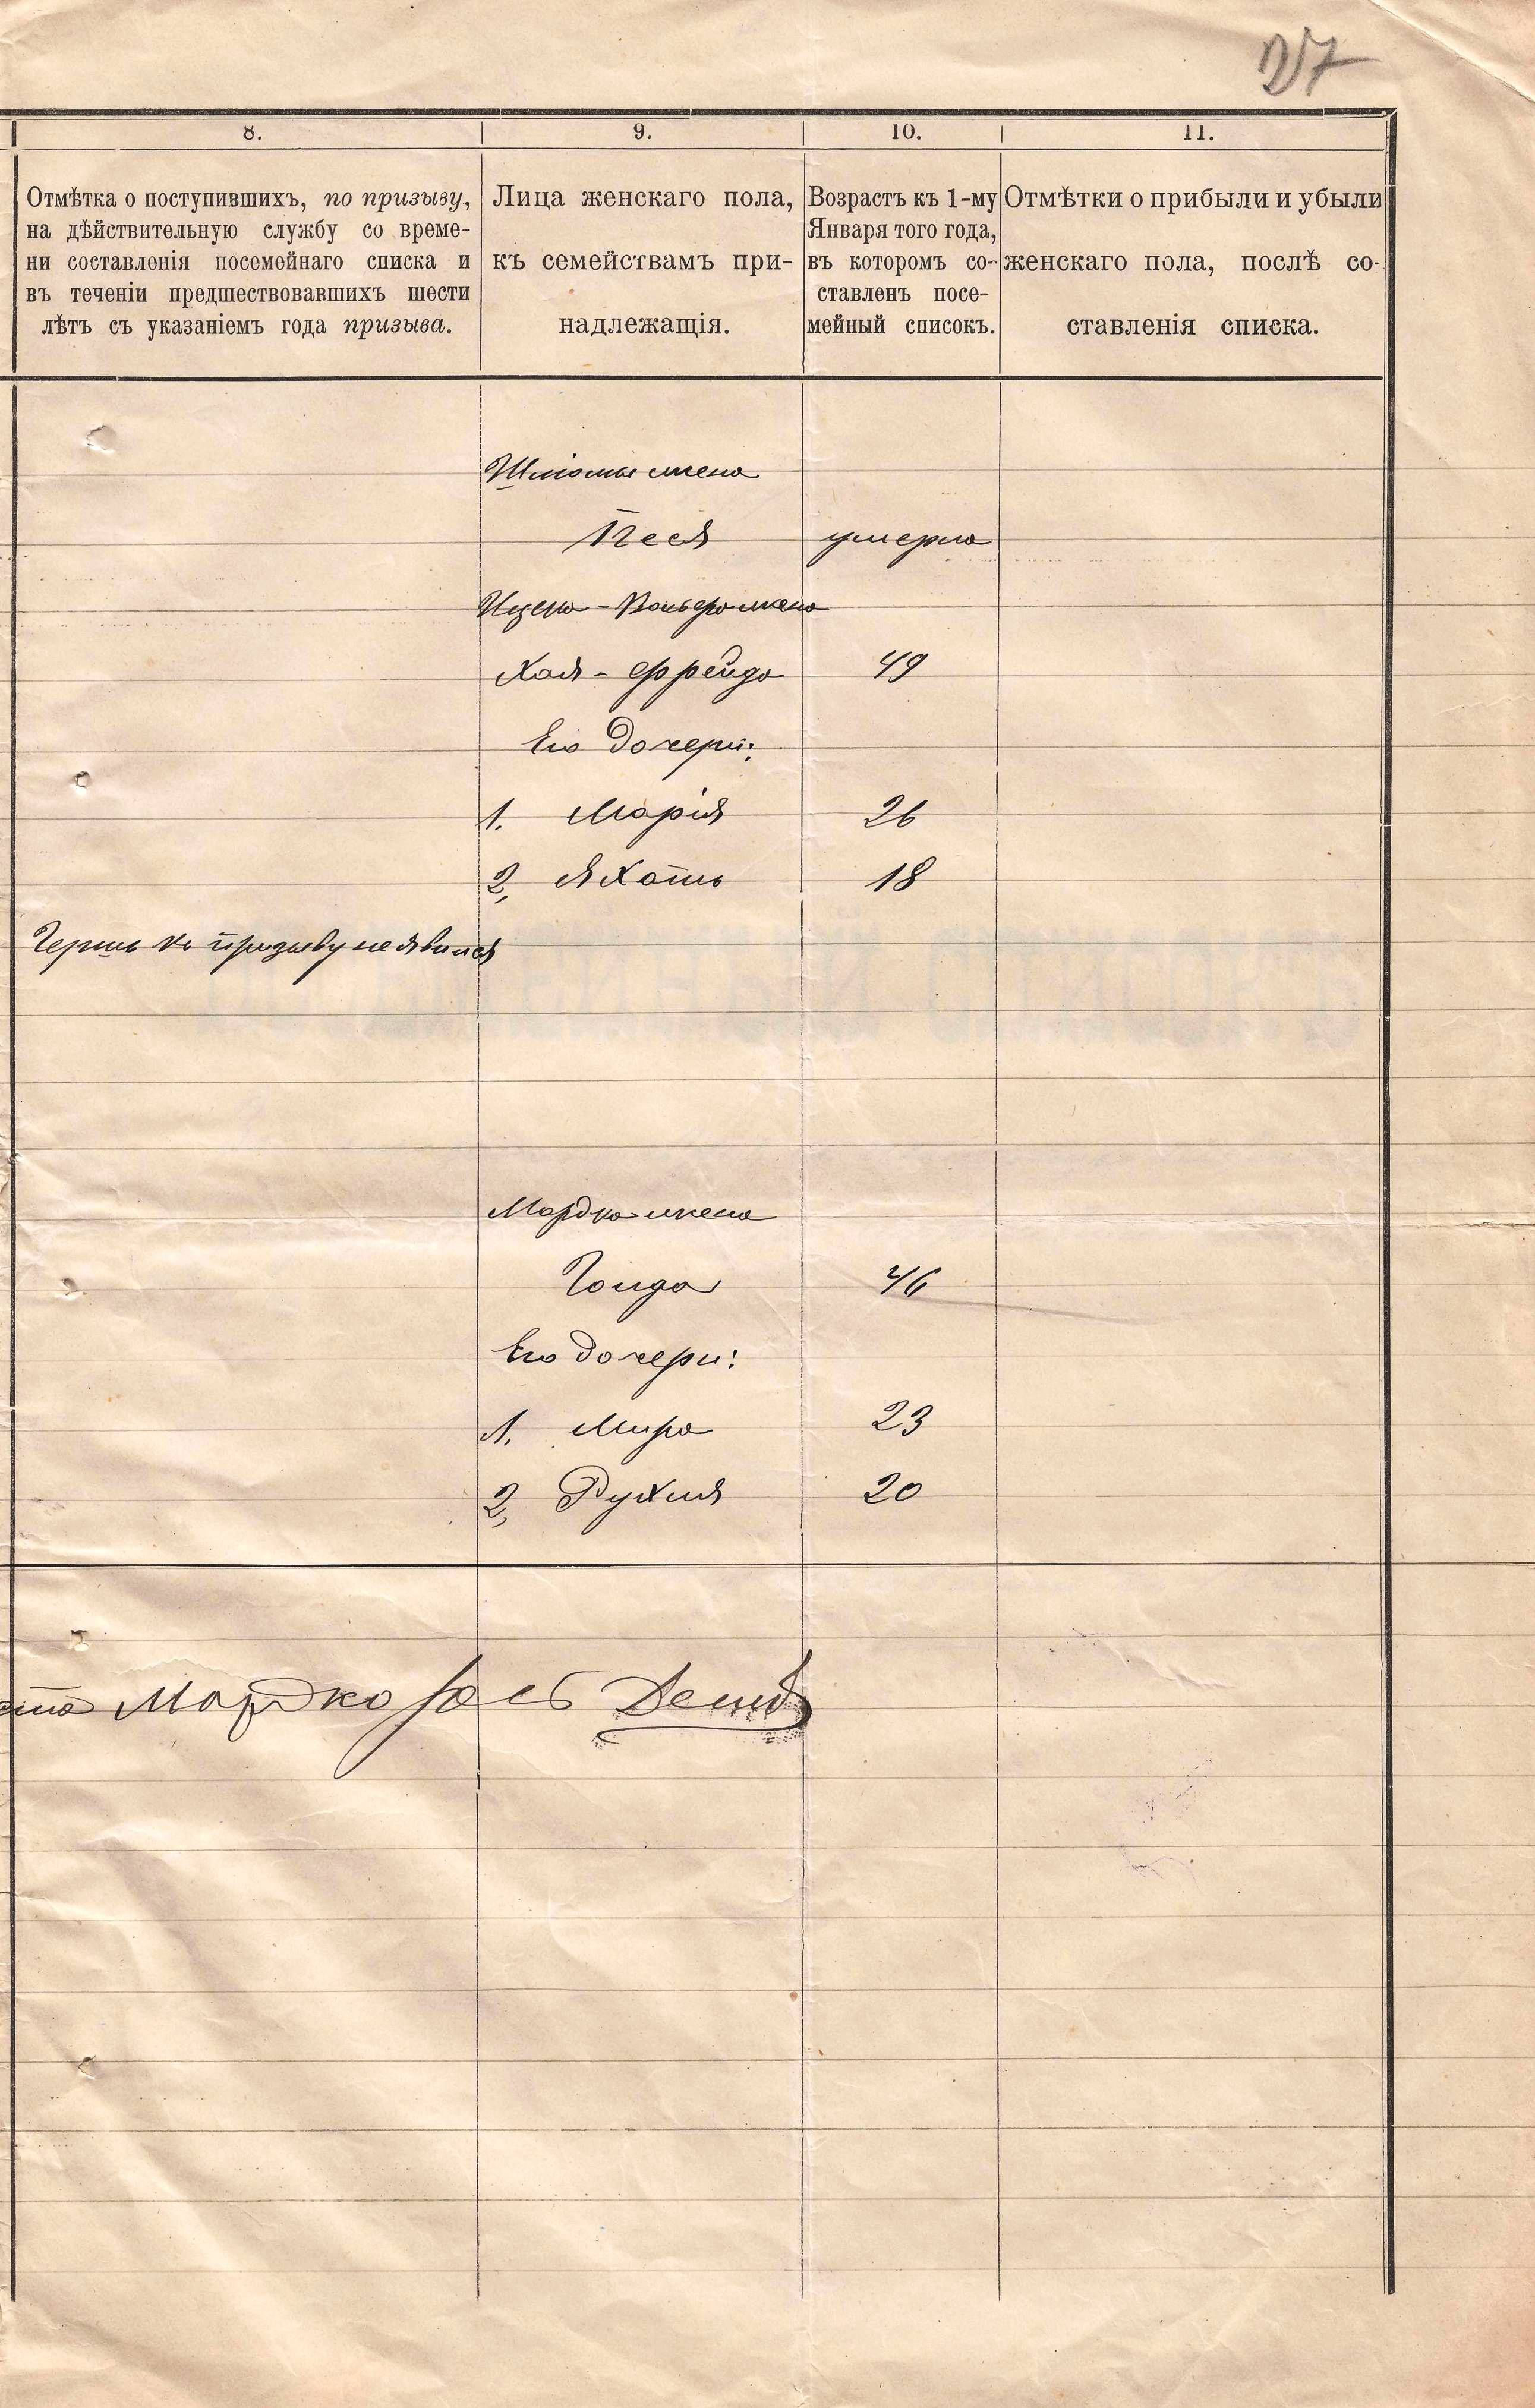 27
8.
9.
10.
11.
Отмѣтка о поступившихъ, по призыву,
на дѣйствительную службу со време-
ни составленія посемейнаго списка и
въ теченіи предшествовавшихъ шести
лѣтъ съ указаніемъ года призыва.
Лица женскаго пола,
къ семействамъ при-
надлежащія.
Возрастъ къ 1-му
Января того года,
въ которомъ со-
ставленъ посе-
мейный списокъ.
Отмѣтки о прибыли и убыли
женскаго пола, послѣ со-
ставленія списка.
Шліомы жена
Песя умерла
Ицека-Вольфа жена
Хая-Фрейда 49
Его дочери:
1. Марія 26
2, Яхать 18
Гершъ къ призыву не явился
Мордка жена
Голда 46
Его дочери:
1. Мира 23
2, Рухля 20
Мордко